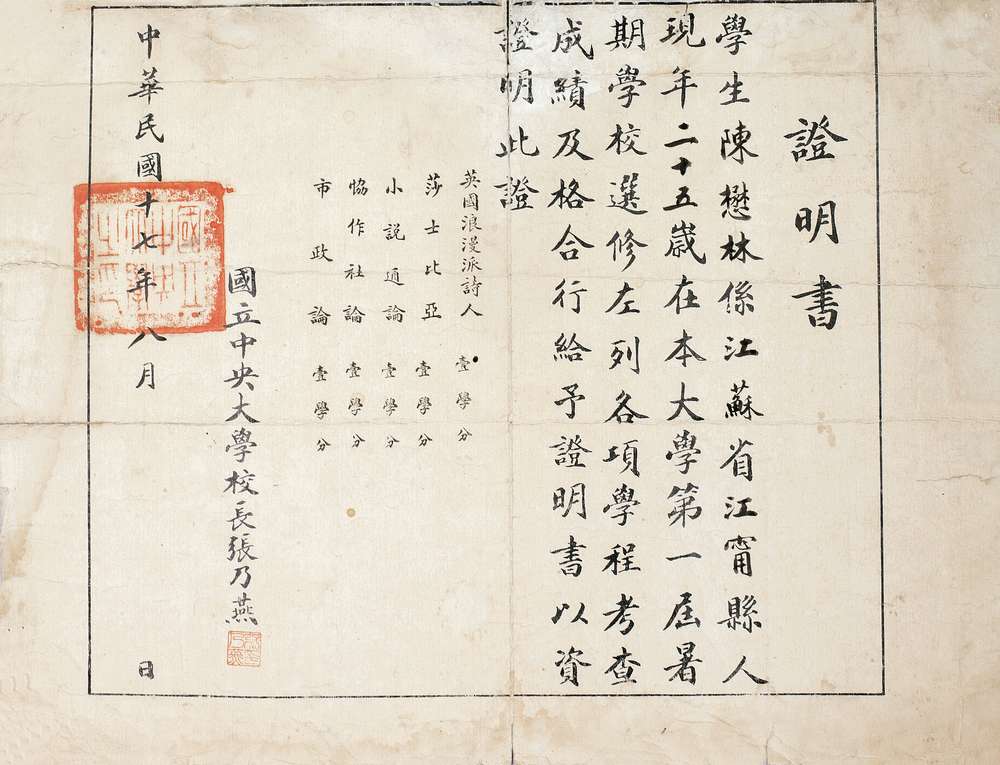 證明書
學生陳懋林係江蘇省江甯縣人
現年二十五歲在本大學第一屆暑
期學校選修左列各項學程考查
成績及格合行給予證明書以資
證明此證
英國浪漫派詩人 壹學分
莎士比亞 壹學分
小説通論 壹學分
恊作社論 壹學分
市政論 壹學分
國立中央大學校長張乃燕
中華民國十七年八月 日
國立中央大學之印